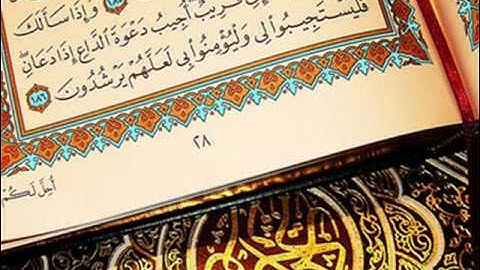 وَإِذَا سَأَلَكَ
قَرِيبٌ أُجِيبُ دَعْوَةَ الدَّاعِ إِذَا دَعَانِ
فَلْيَسْتَجِيبُوا لِى وَلْيُؤْمِنُوا بِى لَعَلَّهُمْ يَرْشُدُونَ ١٨٦
٢٨
أُحِلَّ لَكُمْ